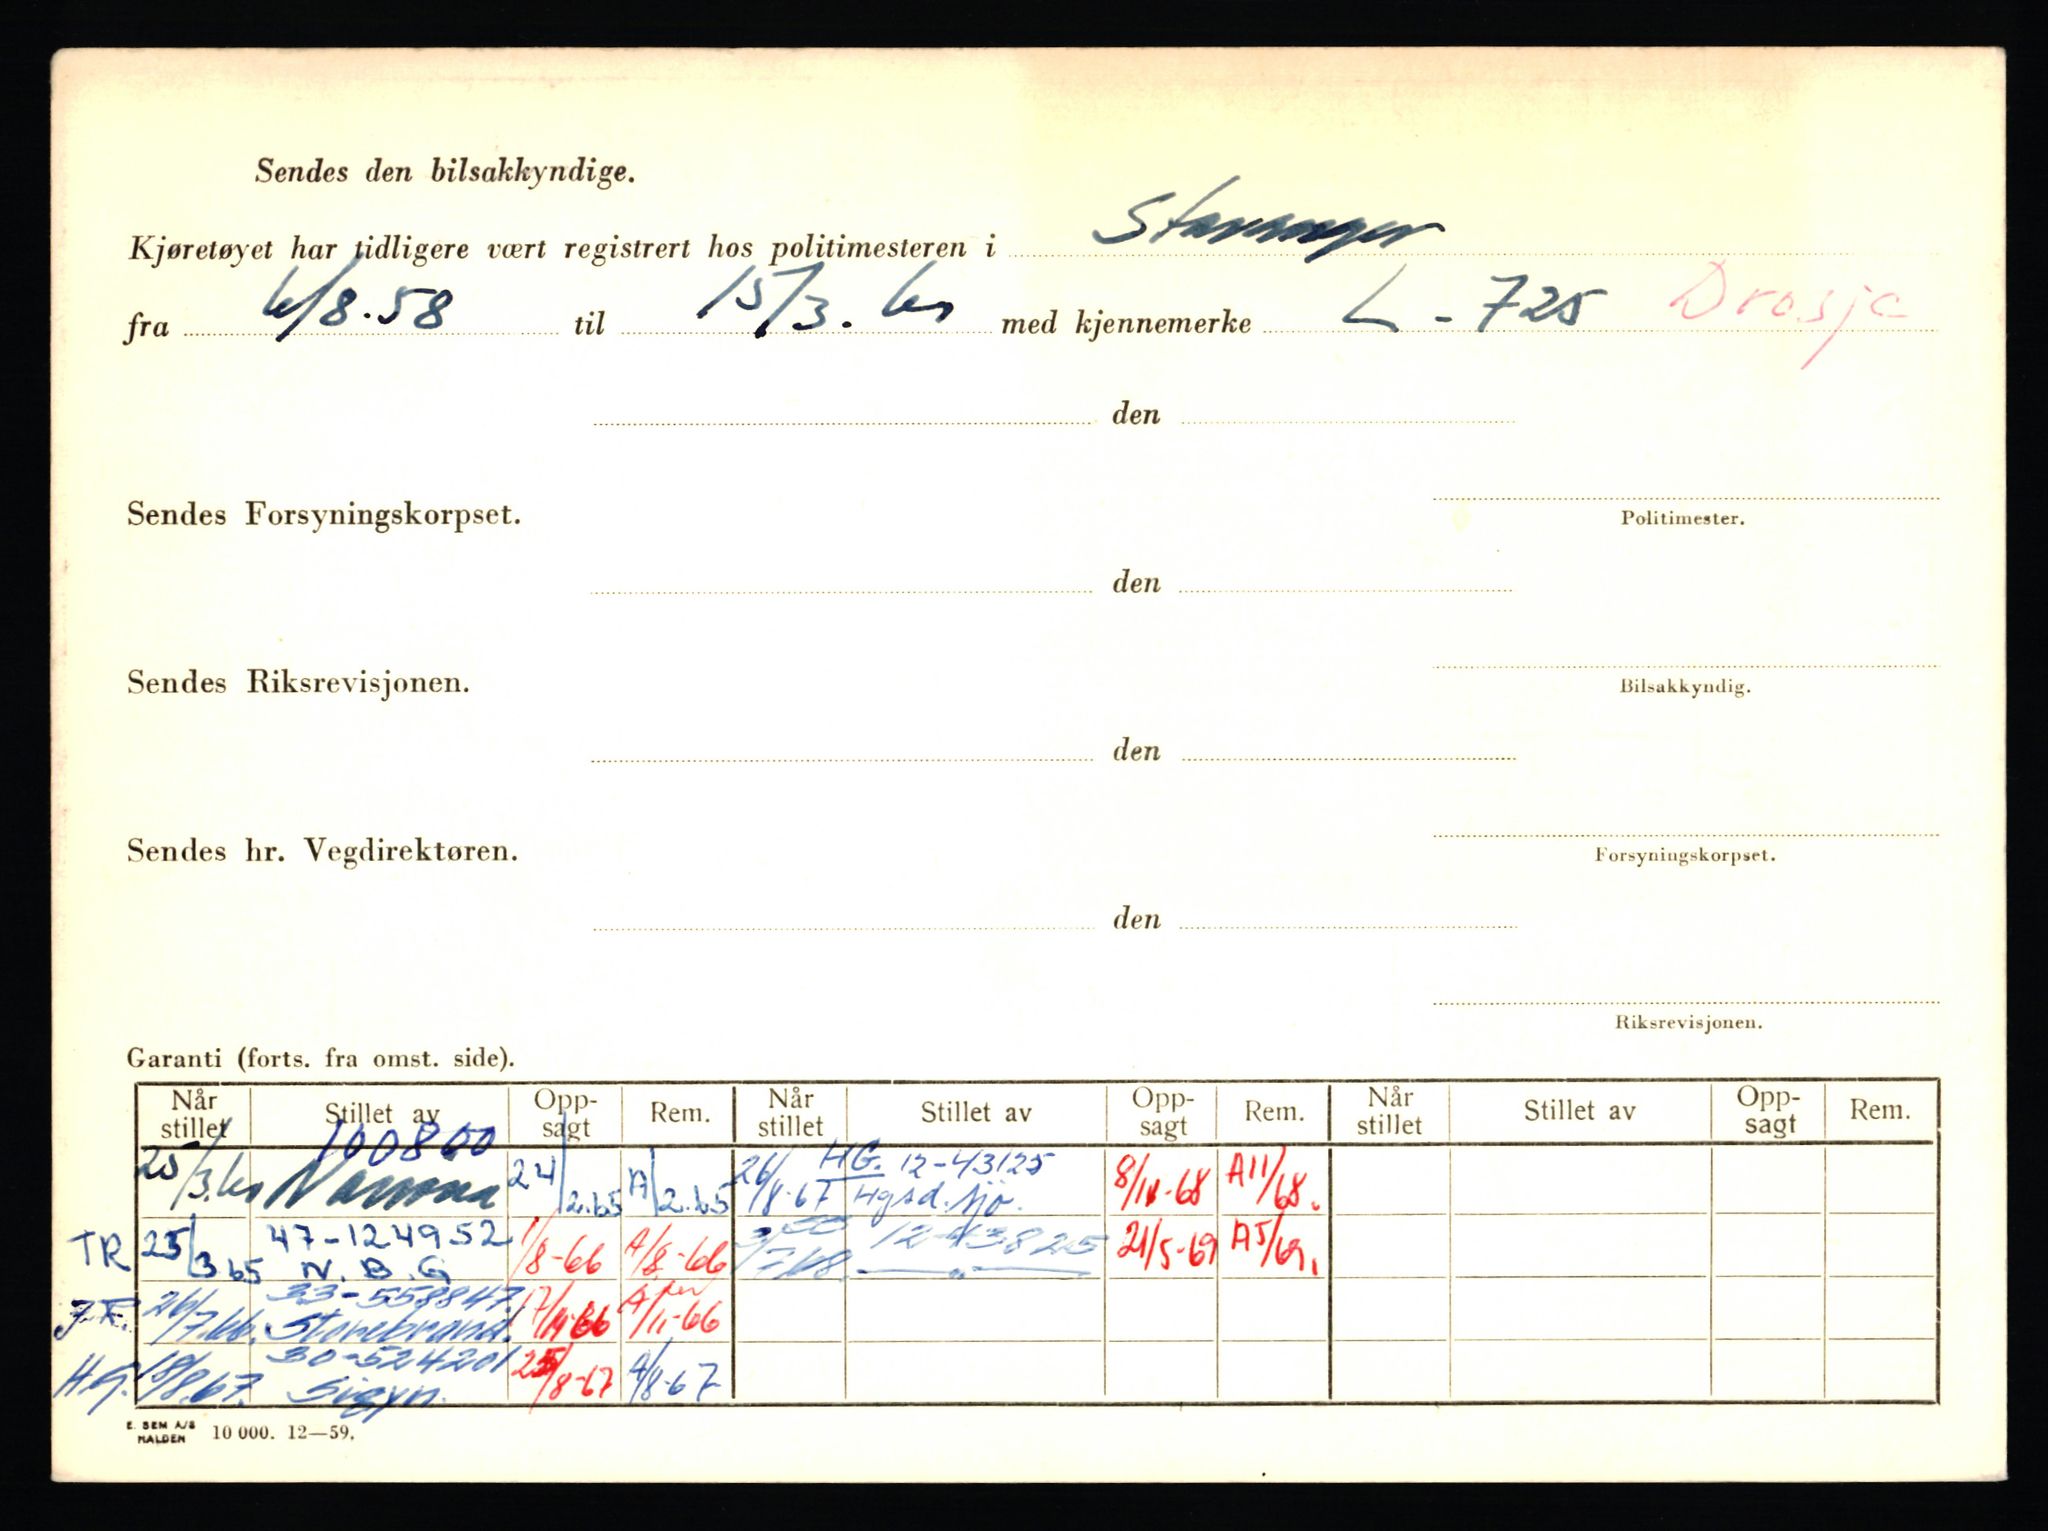 Sendes den bilsakkyndige.
Kjøretøyet har tidligere vært registrert hos politimesteren i Stavanger
fra 6/8.58 til 15/3. med kjennemerke L - 725 Drosje
den
Politimester.
Sendes Forsyningskorpset.
den
Bilsakkyndig.
Sendes Riksrevisjonen.
den
Forsyningskorpset.
Sendes hr. Vegdirektøren.
den
Riksrevisjonen.
Garanti (forts. fra omst. side).
Når stillet Stillet av Opp-sagt Rem. Når stillet Stillet av Opp-sagt Rem. Når stillet Stillet av Opp-sagt Rem.
100800
25/3. 24/2.65 A/2.65 26/8-67 HG. 12-43125 Hgsd. sjø. 8/11-68 A11/68.
TR 25/3 65 47-124952 N.B.G 1/8-66 A/8-66 3/7.68. 12-43825 —„— 21/5-69 A5/69.
26/7.66. 33-558847 Storebrand. 17/11-66 A/11-66
H.G. 18/8.67. 30-524201 Sigyn. 25/8-67 A/8-67
E. SEM A/S
HALDEN 10 000. 12—59.